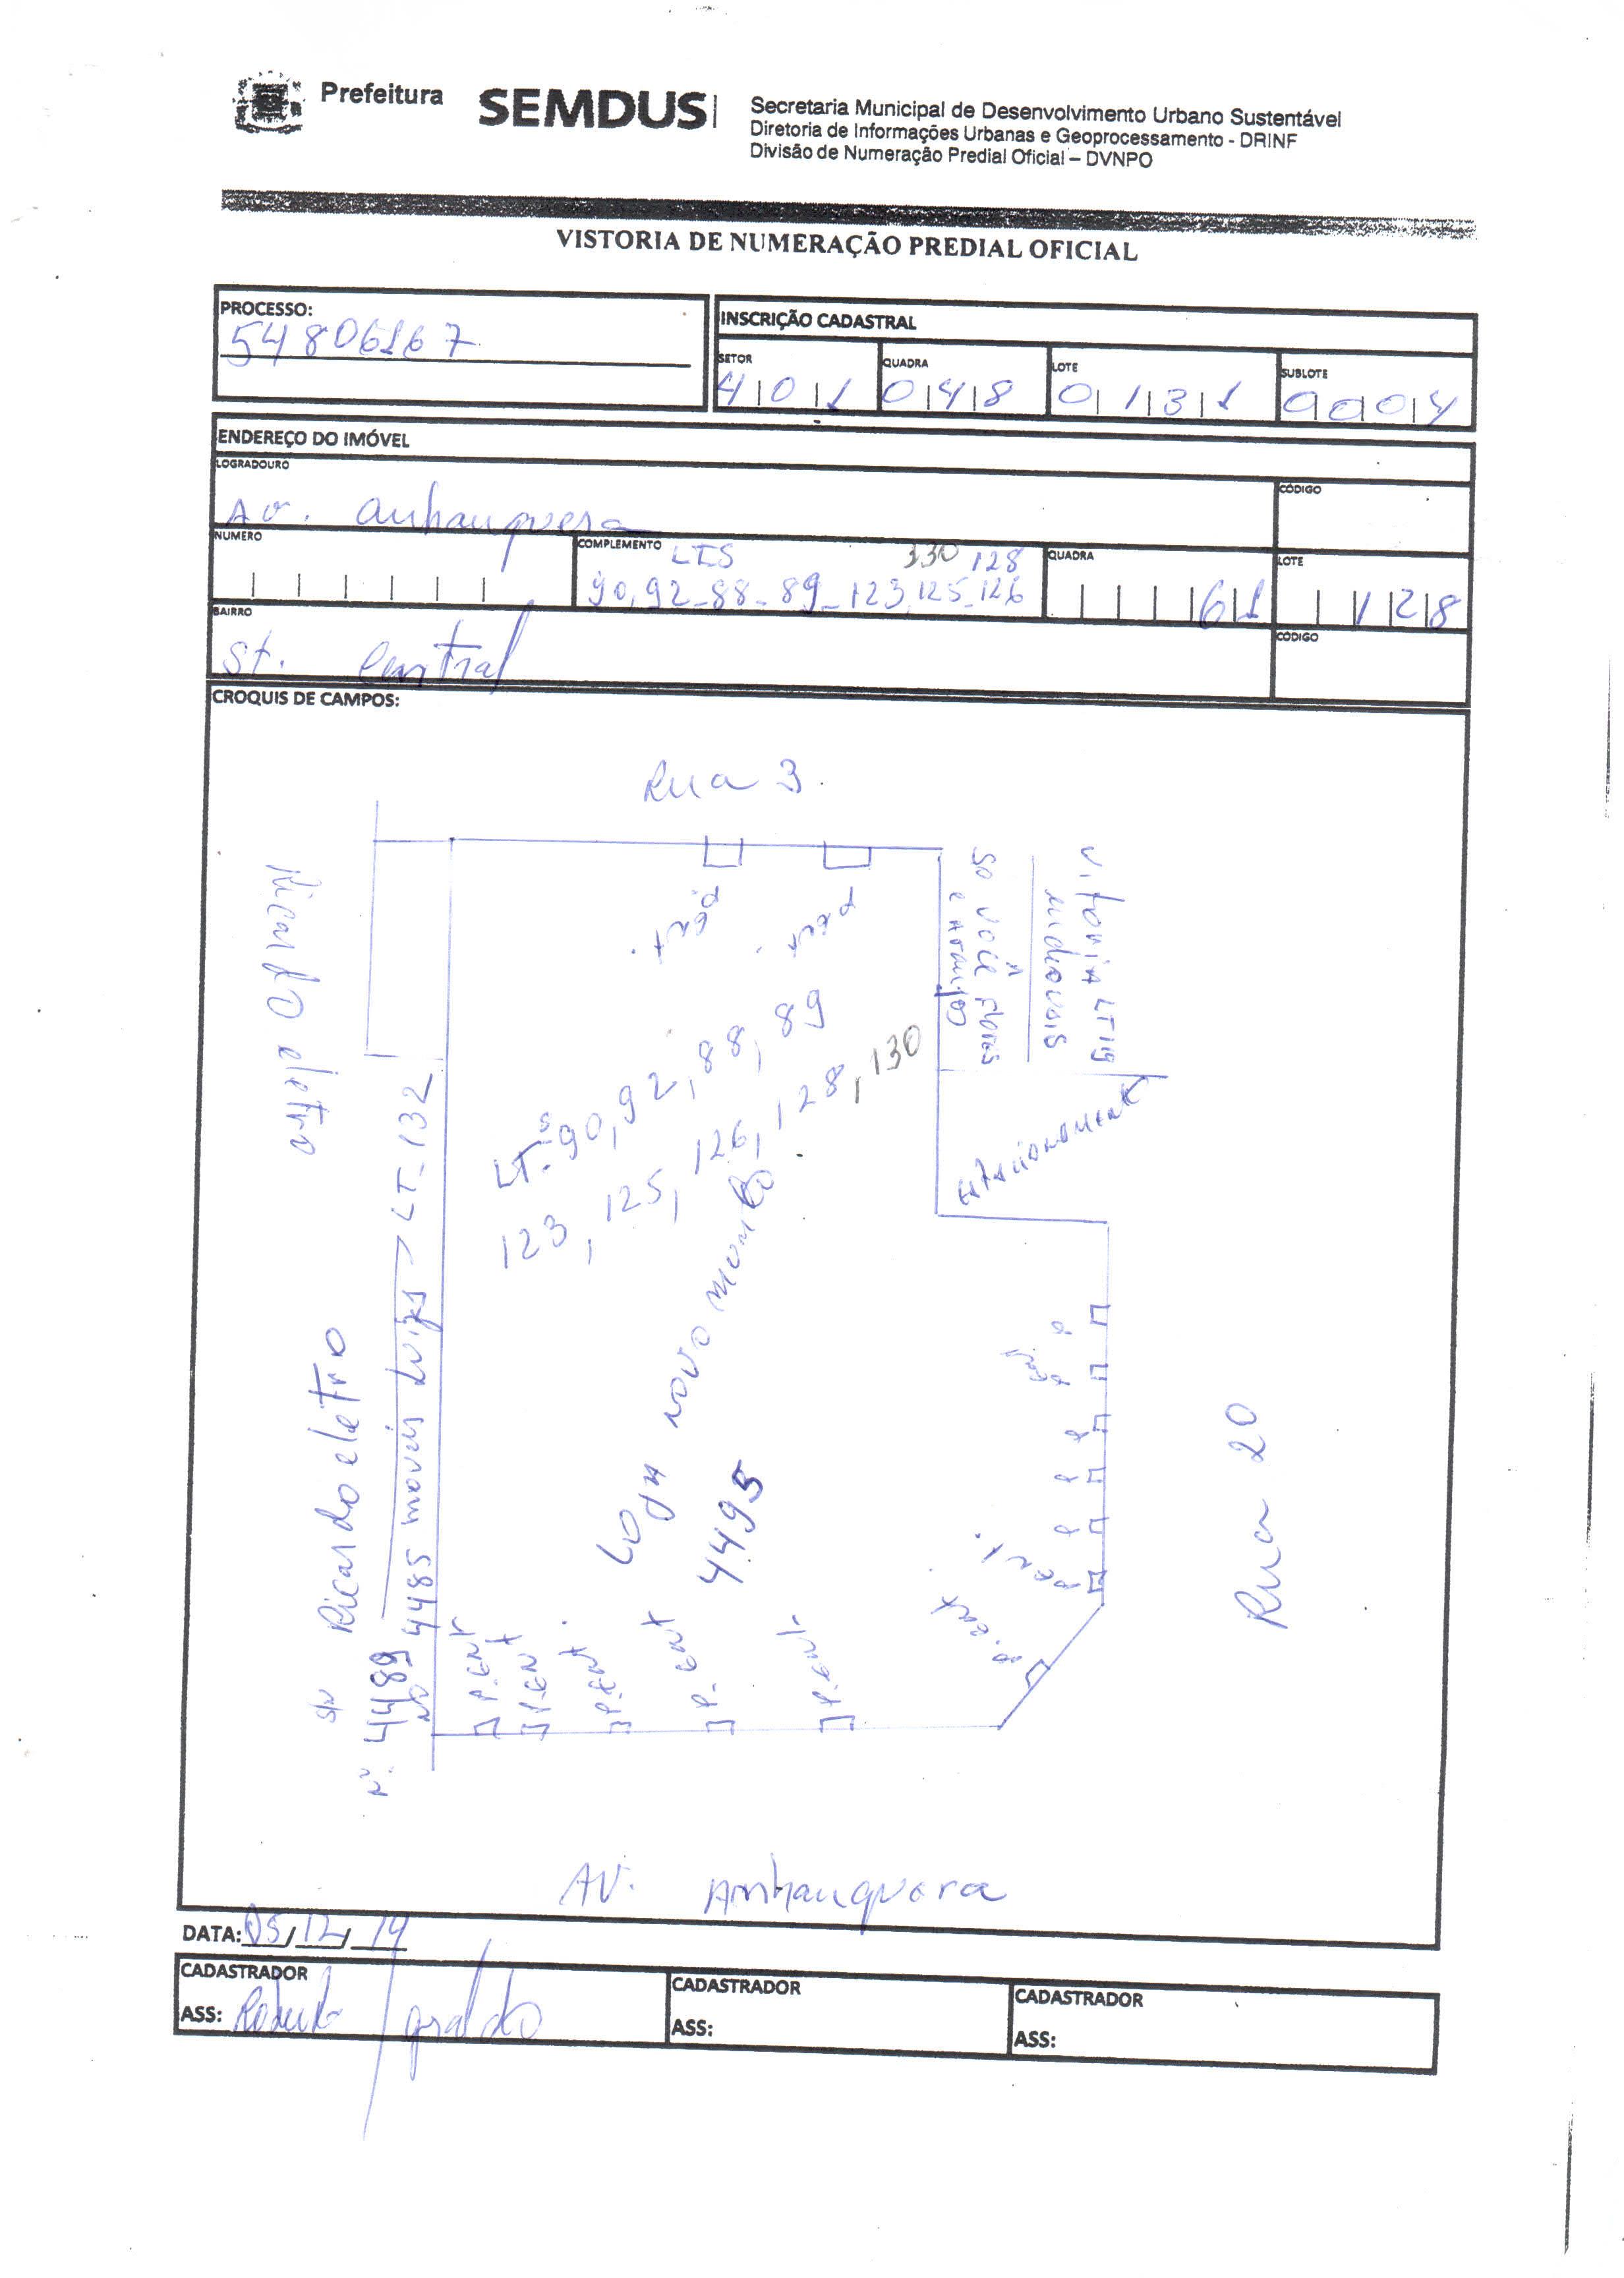 Prefeitura
SEMDUS
Secretaria Municipal de Desenvolvimento Urbano Sustentável
Diretoria de Informações Urbanas e Geoprocessamento - DRINF
Divisão de Numeração Predial Oficial – DVNPO
VISTORIA DE NUMERAÇÃO PREDIAL OFICIAL
PROCESSO:
54806167
INSCRIÇÃO CADASTRAL
SETOR
401
QUADRA
048
LOTE
0131
SUBLOTE
0004
ENDEREÇO DO IMÓVEL
LOGRADOURO
Av. Anhanguera
CÓDIGO
NUMERO
COMPLEMENTO
LTS 130 128
90,92-88-89-123,125-126
QUADRA
61
LOTE
128
BAIRRO
St. Central
CÓDIGO
CROQUIS DE CAMPOS:
Rua 3
Ricardo eletro
LTS-90,92,88,89
123,125,126,128,130
Loja novo mundo
4495
Vitoria LT 119
Só Você Flores
e Arranjos
s/n Ricardo eletro
Nº 4489
Nº 4485 moveis Luiza → LT-132
P.ENT
P.ENT
P.ENT
P.ENT
P.ENT
P.ENT
P ENT.
P
P
P
P
P
Rua 20
Av. Anhanguera
DATA: 05/12/19
CADASTRADOR
ASS:
CADASTRADOR
ASS:
CADASTRADOR
ASS: